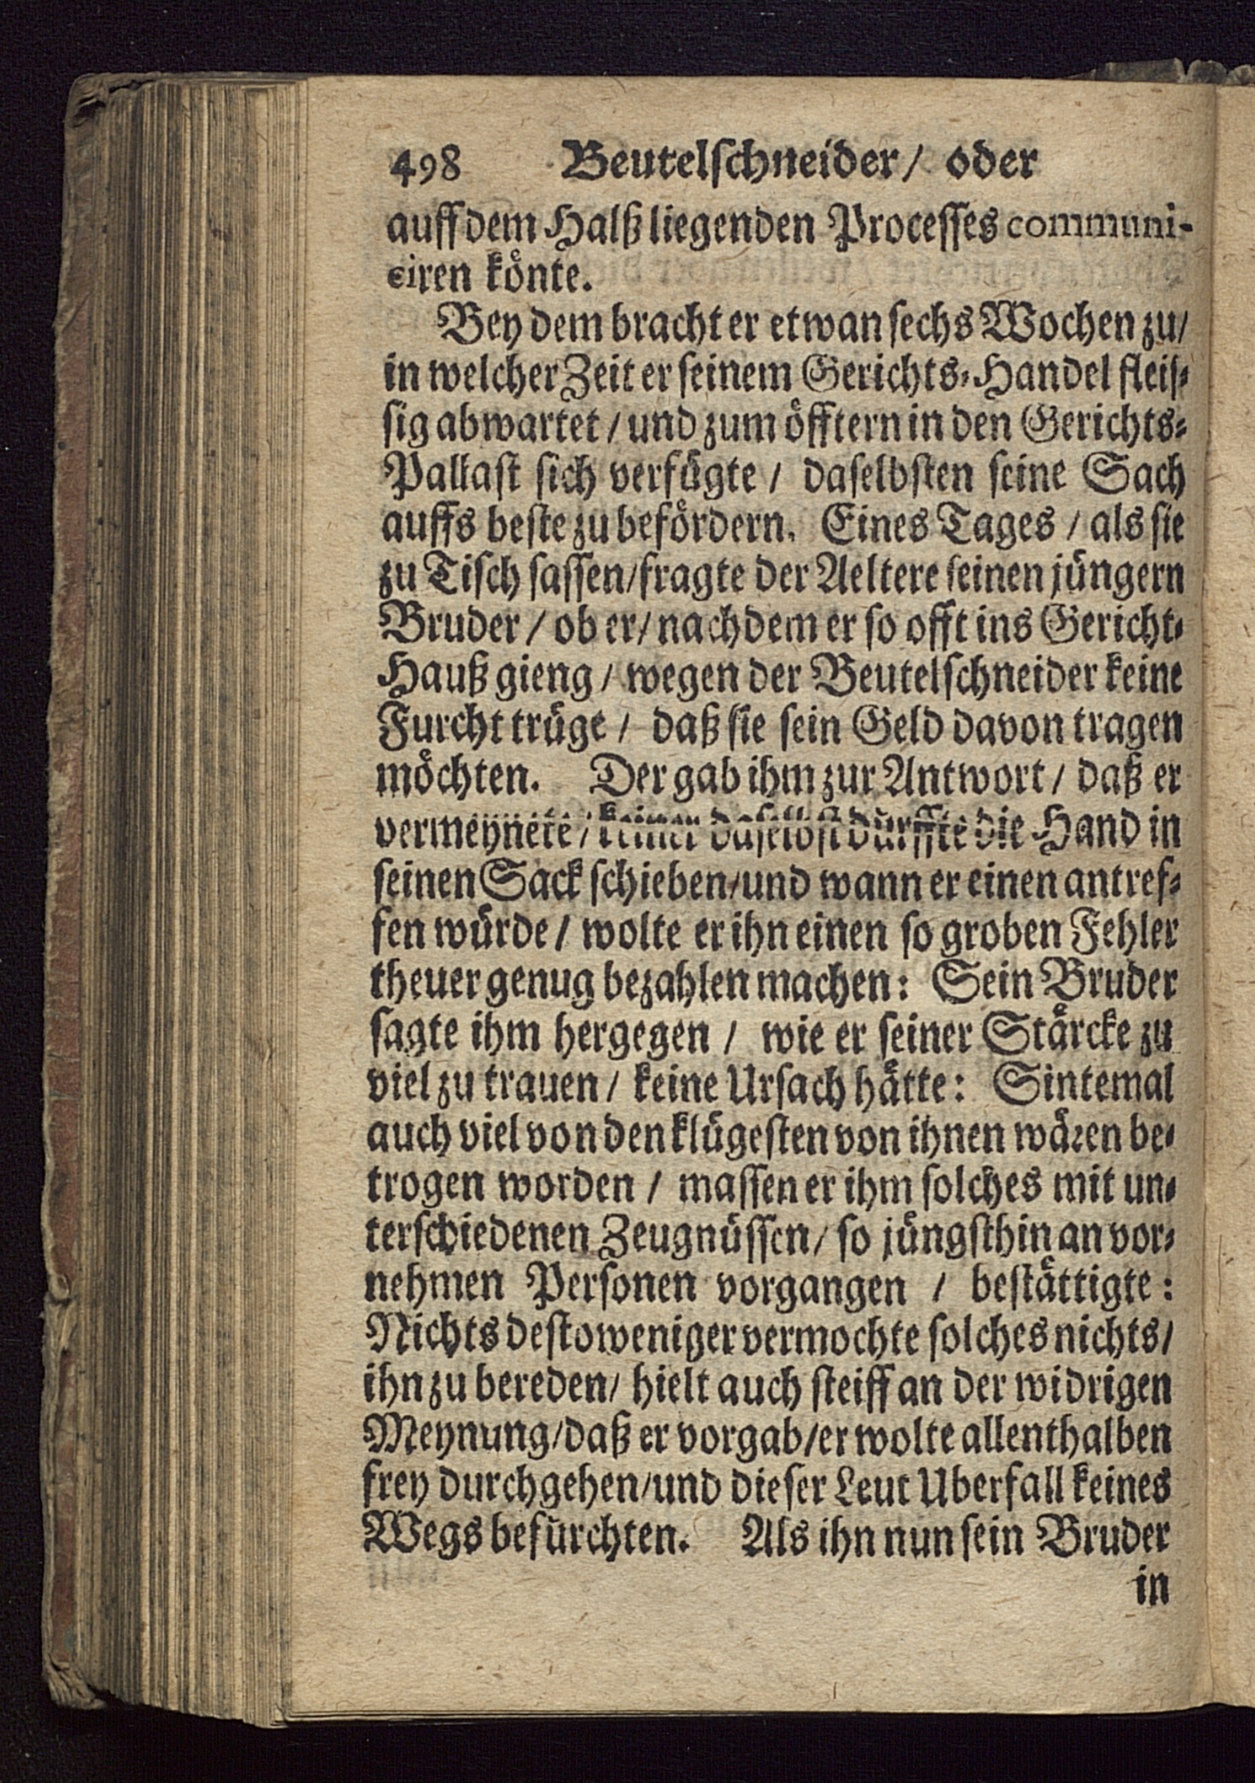 498 Beutelschneider/ oder
auff dem Halß liegenden Processes communi-
ciren könte.
Bey dem bracht er etwan sechs Wochen zu/
in welcher Zeit er seinem Gerichts-Handel fleis-
sig abwartet/ und zum öfftern in den Gerichts-
Pallast sich verfügte/ daselbsten seine Sach
auffs beste zu befördern. Eines Tages/ als sie
zu Tisch sassen/fragte der Aeltere seinen jüngern
Bruder/ ob er/ nachdem er so offt ins Gericht-
Hauß gieng/ wegen der Beutelschneider keine
Furcht trüge/ daß sie sein Geld davon tragen
möchten. Der gab ihm zur Antwort/ daß er
vermeynete/ keiner daselbst dürffte die Hand in
seinen Sack schieben/und wann er einen antref-
fen würde/ wolte er ihn einen so groben Fehler
theuer genug bezahlen machen: Sein Bruder
sagte ihm hergegen/ wie er seiner Stärcke zu
viel zu trauen/ keine Ursach hätte: Sintemal
auch viel von den klügesten von ihnen wären be-
trogen worden/ massen er ihm solches mit un-
terschiedenen Zeugnüssen/ so jüngsthin an vor-
nehmen Personen vorgangen/ bestättigte:
Nichts destoweniger vermochte solches nichts/
ihn zu bereden/ hielt auch steiff an der widrigen
Meynung/daß er vorgab/er wolte allenthalben
frey durchgehen/und dieser Leut Uberfall keines
Wegs befürchten. Als ihn nun sein Bruder
in